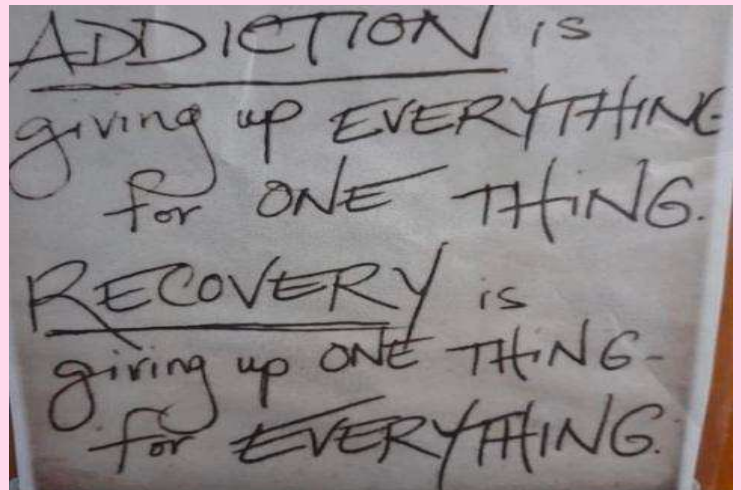 ADDICTION is
giving up EVERYTHING
for ONE THING.
RECOVERY is
giving up ONE THING-
for EVERYTHING.